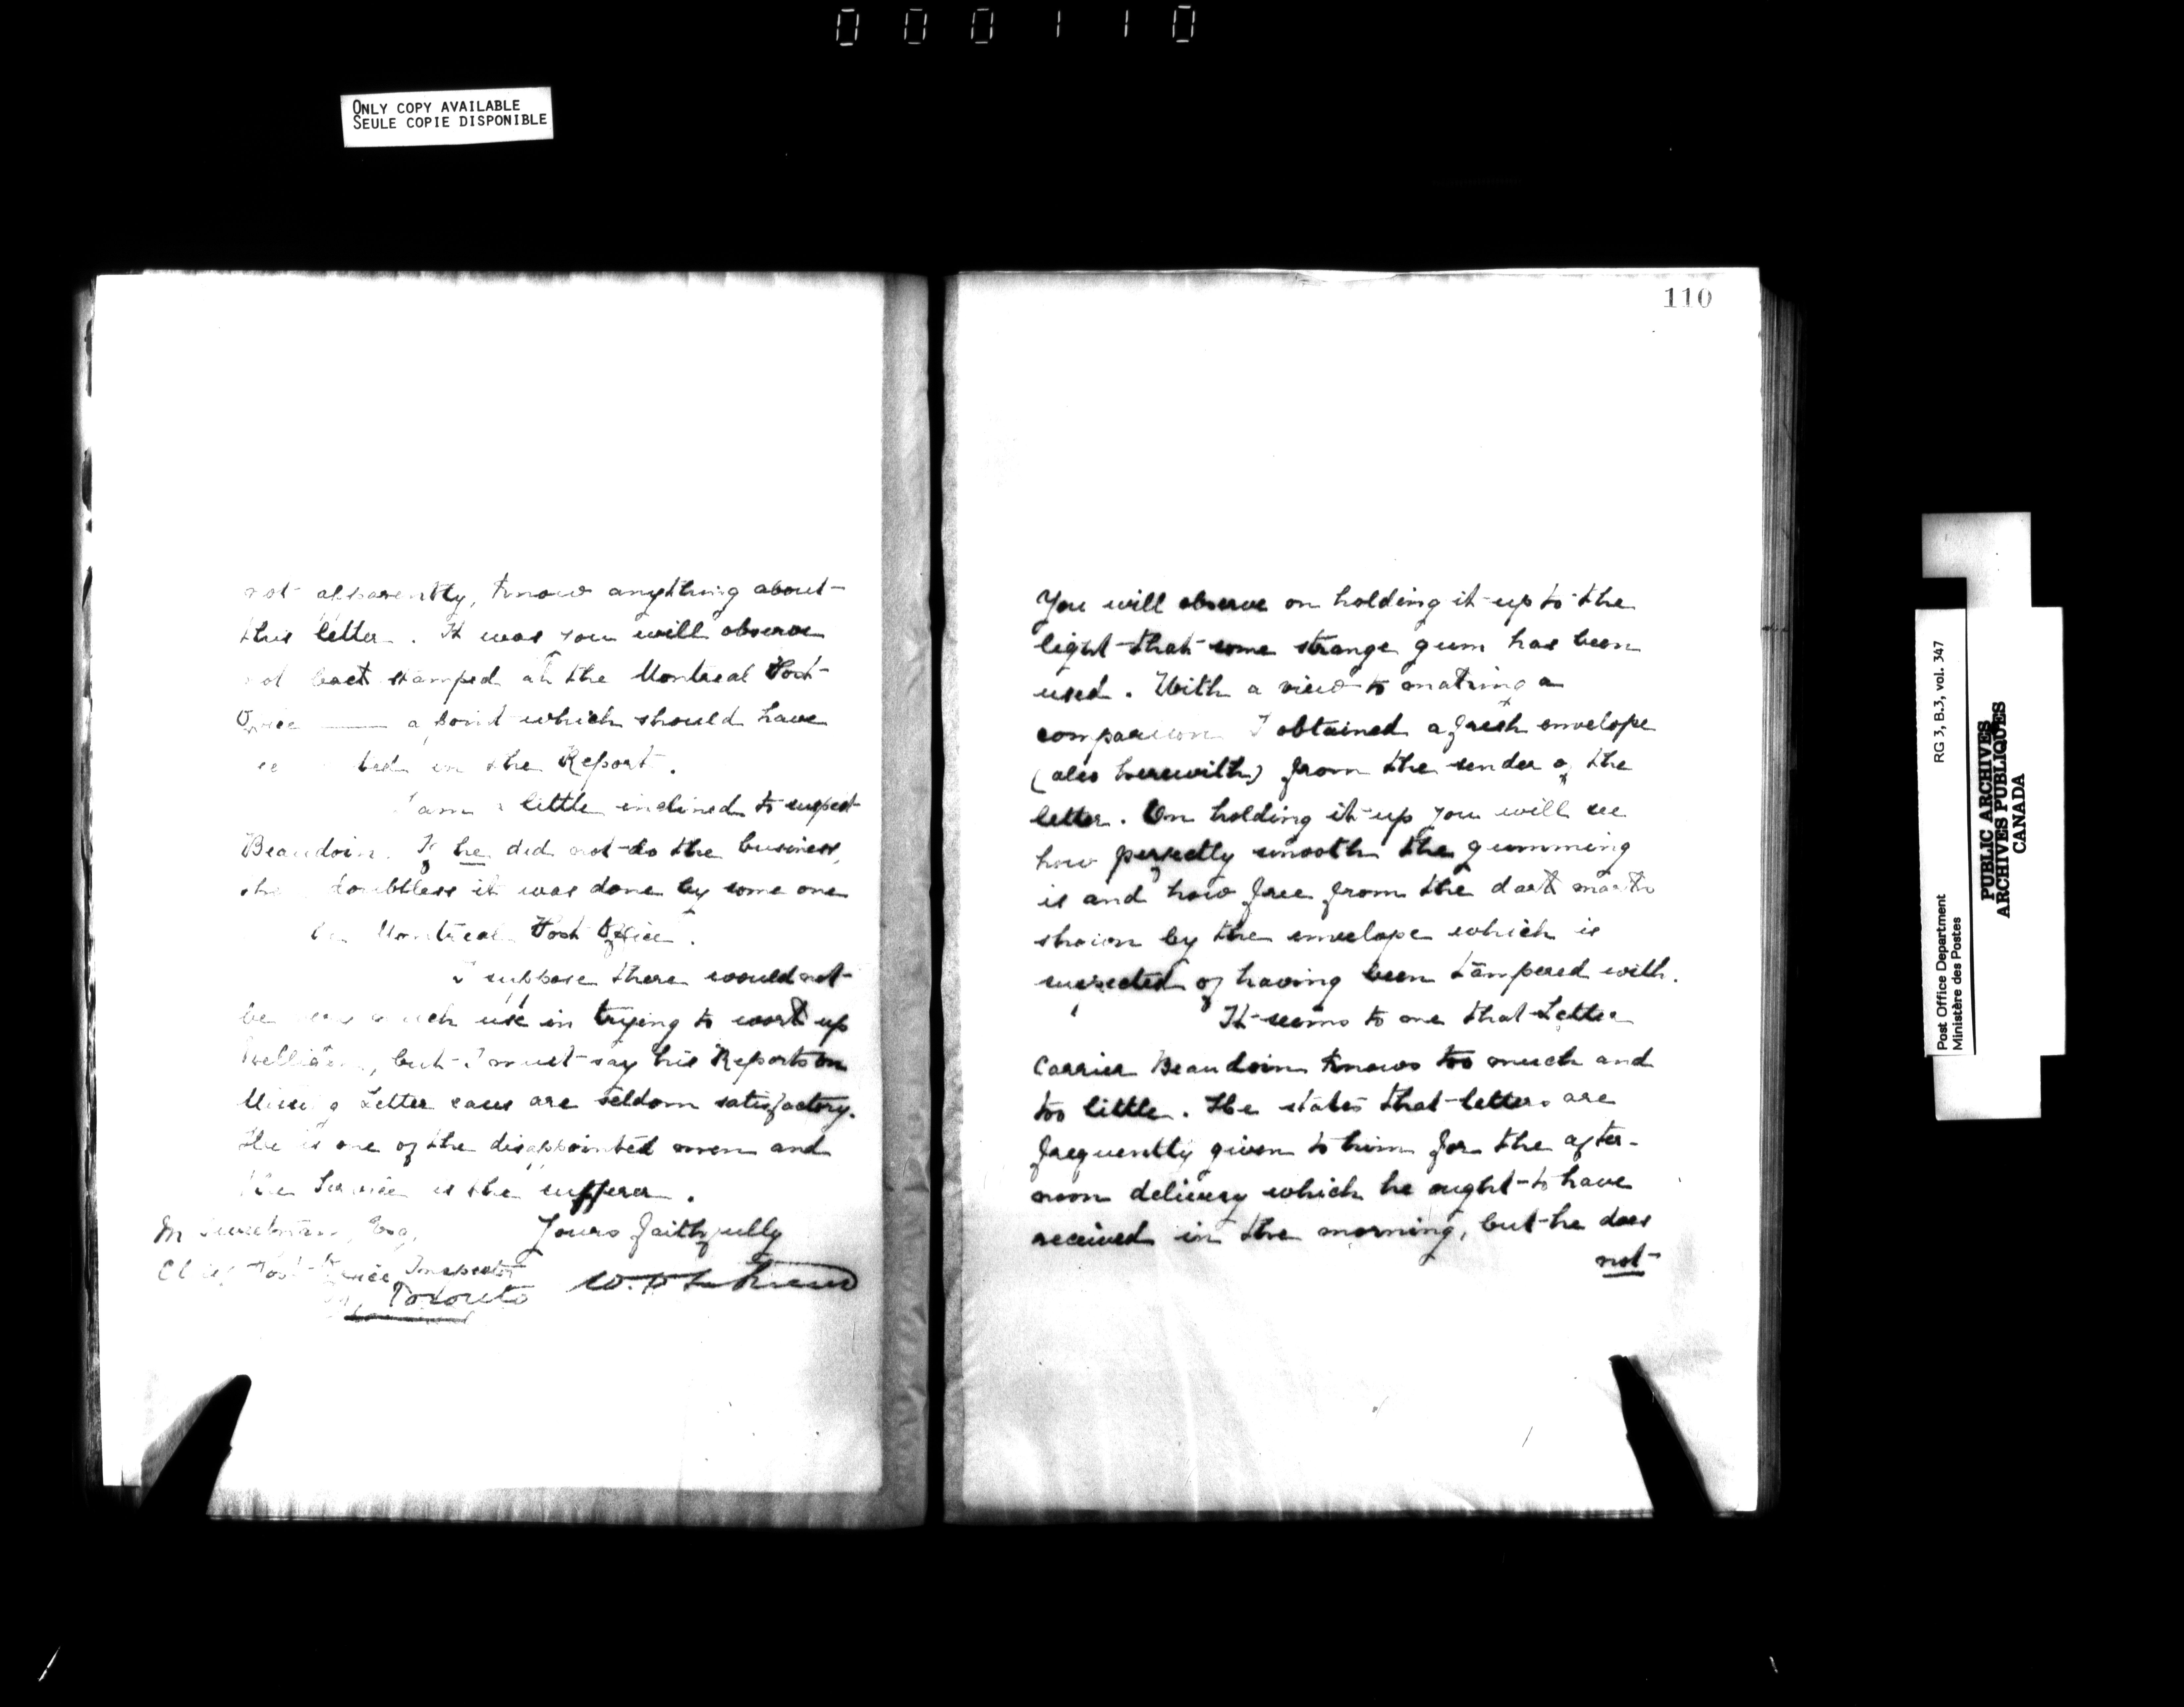 000110
ONLY COPY AVAILABLE
SEULE COPIE DISPONIBLE
not apparently, know anything about
this letter. It was you will observe
not back stamped at the Montreal Post
Office — a point which should have
in the Report.
I am a little inclined to suspect
Beaudoin. If he did not do the business,
doubtless it was done by some one
Montreal Post Office.
I suppose there would not
be much use in trying to work up
but I must say his Reports on
Missing Letter cases are seldom satisfactory.
He is one of the disappointed men and
the Service is the sufferer.
Yours faithfully
M Sweetnam, Esq,
Chief Post Office Inspector
Toronto
110
You will observe on holding it up to the
light that some strange gum has been
used. With a view to making a
comparison I obtained a fresh envelope
(also herewith) from the sender of the
letter. On holding it up you will see
how perfectly smooth the gumming
is and how free from the dark marks
shown by the envelope which is
suspected of having been tampered with.
It seems to me that Letter
Carrier Beaudoin knows too much and
too little. He states that letters are
frequently given to him for the after-
noon delivery which he ought to have
received in the morning, but he does
not
Post Office Department
Ministère des Postes
RG 3, B.3, vol. 347
PUBLIC ARCHIVES
ARCHIVES PUBLIQUES
CANADA